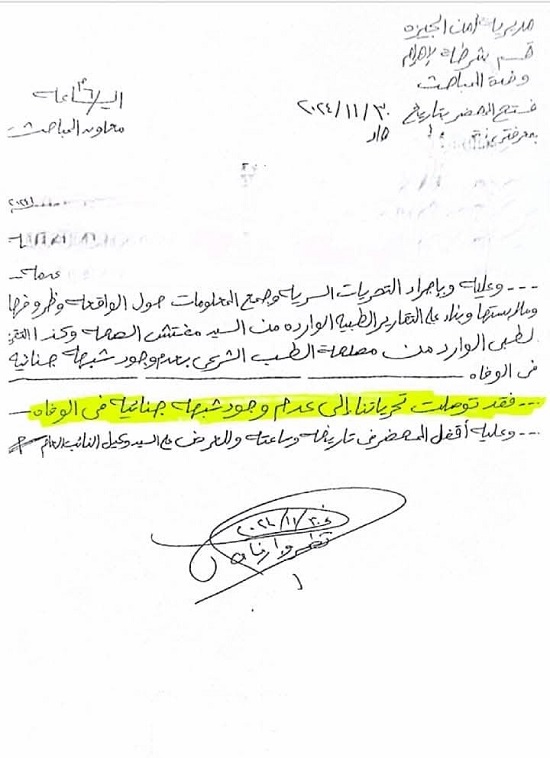 مديرية أمن الجيزة
قسم شرطة الاهرام
وحدة المباحث
الساعة
فتح المحضر بتاريخ ٣٠/١١/٢٠٢٤
معاون المباحث
بمعرفتي
--- وعليه وبإجراء التحريات السرية وجمع المعلومات حول الواقعة وظروفها
وملابستها وبناء على التقارير الطبية الوارده من السيد مفتش الصحة وكذا
الطبى الوارد من مصلحة الطب الشرعى بعدم وجود شبهة جنائية
فى الوفاه
--- فقد توصلت تحرياتنا إلى عدم وجود شبهه جنائية فى الوفاه -
--- وعليه أقفل المحضر فى تاريخه وساعته والعرض على السيد وكيل النائب العام
٣٠/١١/٢٠٢٤